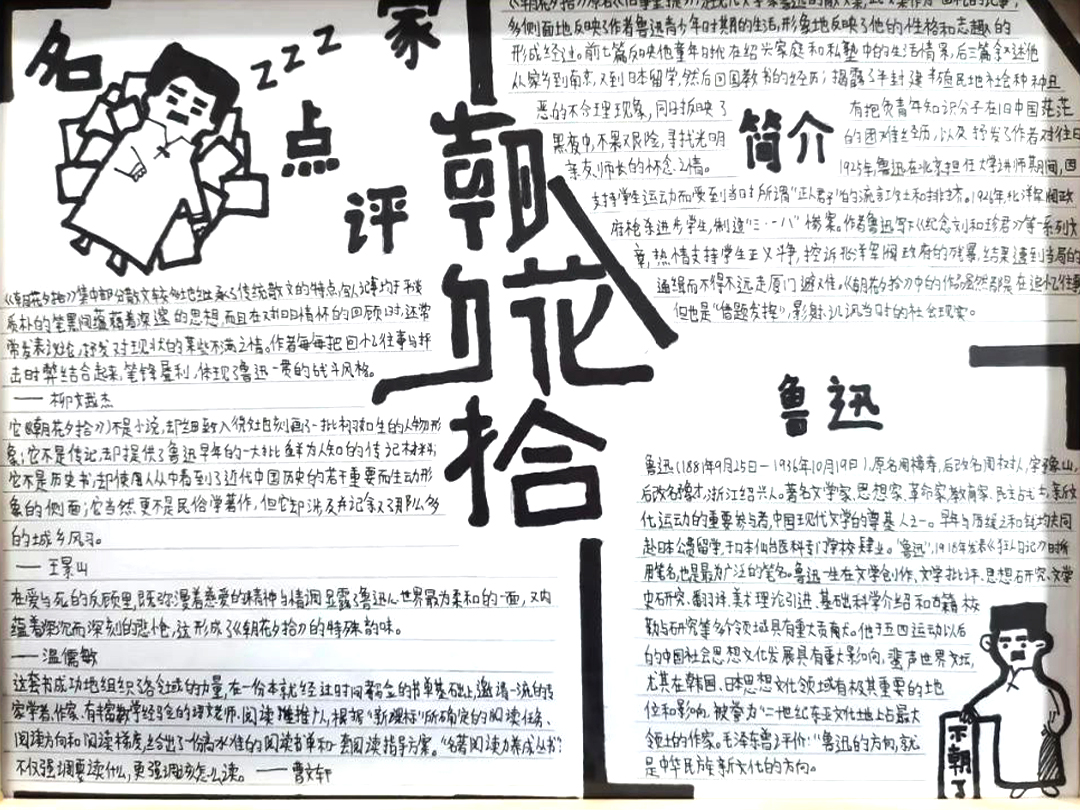 朝花夕拾
名家点评
zzz
《朝花夕拾》集中部分散文较多地继承了传统散文的特点,叙人记事均于平淡
质朴的笔墨间蕴藉着深邃的思想,而且在对旧日情怀的回顾时,还常
常发表议论,抒发对现状的某些不满之情。作者每每把回忆往事与抨
击时弊结合起来,笔锋犀利,体现了鲁迅一贯的战斗风格。
——柳文
它《朝花夕拾》不是小说,却细致入微地刻画了一批栩栩如生的人物形
象;它不是传记,却提供了鲁迅早年的一大批鲜为人知的传记材料;
它不是历史书,却使周人从中看到了近代中国历史的若干重要而生动形
象的侧面;它当然更不是民俗学著作,但它却涉及并记叙了那么多
的城乡风习。
——王景山
在爱与死的反顾里,既弥漫着慈爱的精神与情调,显露了鲁迅心世界最为柔和的一面,又内
蕴着深沉而深刻的悲怆,这形成了《朝花夕拾》的特殊韵味。
——温儒敏
这套书成功地组织了各领域的力量,在一份本就经过时间的书单基础上,邀请一流的专
家学者、作家、有丰富教学经验的语文老师、阅读推广人,根据“新课标”所确定的阅读任务、
阅读方向和阅读梯度,给出了一份高水准的阅读书单和一套阅读指导方案。“名著阅读力养成丛书”
不仅强调要读什么,更强调该怎么读。——曹文轩
简介
多侧面地反映了作者鲁迅青少年时期的生活,形象地反映了他的性格和志趣的
形成经过。前七篇反映他童年时代在绍兴家庭和私塾中的生活情景,后三篇叙述他
从家乡到南京,又到日本留学,然后回国教书的经历;揭露了半封建半殖民地社会种种丑
恶的不合理现象,同时反映了
有抱负青年知识分子在旧中国茫茫
黑夜中,不畏艰险,寻找光明
的困难经历,以及抒发了作者对往日
亲友师长的怀念之情。
1925年,鲁迅在北京担任大学讲师期间,因
支持学生运动而受到当时所谓“正人君子”们的流言攻击和排挤。1926年,北洋军阀政
府枪杀进步学生,制造“三·一八”惨案。作者鲁迅写下《纪念刘和珍君》等一系列文
章,热情支持学生正义斗争,控诉北洋军阀政府的残暴,结果遭到当局的
通缉而不得不远走厦门避难。《朝花夕拾》中的作品虽然都是在追忆往事
但也是“借题发挥”,影射、讥讽当时的社会现实。
鲁迅
鲁迅(1881年9月25日—1936年10月19日),原名周樟寿,后改名周树人,字豫山,
后改名豫才,浙江绍兴人。著名文学家、思想家、革命家、教育家、民主战士,新文
化运动的重要参与者,中国现代文学的奠基人之一。早年与厉绥之和钱均夫同
赴日本公费留学,于日本仙台医科专门学校肄业。“鲁迅”,1918年发表《狂人日记》时所
用笔名,也是最为广泛的笔名。鲁迅一生在文学创作、文学批评、思想研究、文学
史研究、翻译、美术理论引进、基础科学介绍和古籍校
勘与研究等多个领域具有重大贡献。他于五四运动以后
的中国社会思想文化发展具有重大影响,蜚声世界文坛,
尤其在韩国、日本思想文化领域有极其重要的地
位和影响,被誉为“二十世纪东亚文化地图上占最大
领土的作家。毛泽东曾评价:“鲁迅的方向,就
是中华民族新文化的方向。
不朝了